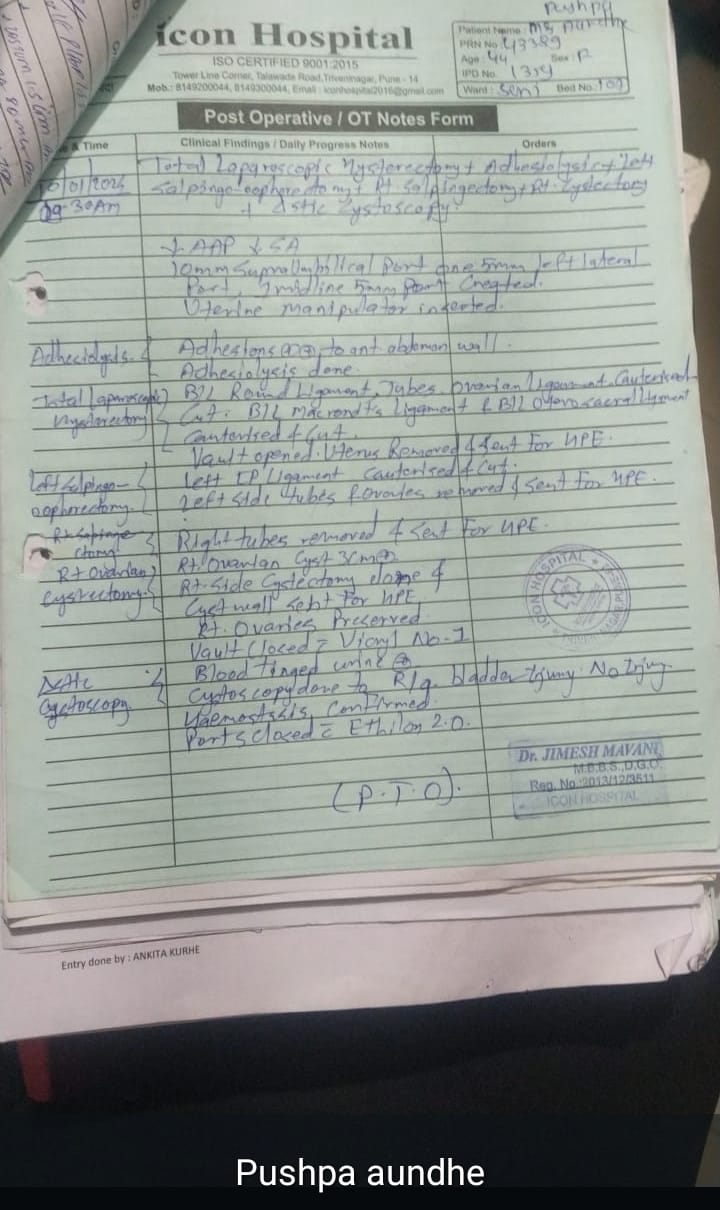 Pushpa
icon Hospital
ISO CERTIFIED 9001:2015
Tower Line Corner, Talawade Road, Triveninagar, Pune - 14
Mob.: 8149200044, 8149300044, Email : iconhospital2016@gmail.com
Patient Name : Ms
PRN No. 43389
Age : 44 Sex : F
IPD No. 1359
Ward : Semi Bed No. 107
Post Operative / OT Notes Form
& Time Clinical Findings / Daily Progress Notes Orders
Total Laparoscopic Hysterectomy + Adhesiolysis + left
10/01/2026 Salpingo-oophorectomy + Rt. Salpingectomy + Rt. Cystectomy
09-30AM + Cystoscopy.
↓ AAP ↓ SA
10mm Supraumbilical Port one 5mm left lateral
Port, 1 midline 5mm Port Created.
Uterine manipulator inserted.
Adhesions to ant abdomen wall.
Adhesiolysis done.
Total Laparoscopic B/L Round Ligament, Tubes, Ovarian Ligament Cauterised
Cut. B/L Ligament & B/L Ligament
Cauterised & Cut.
Vault opened. Uterus Removed & sent For HPE.
Left Salpingo- left IP Ligament Cauterised & Cut.
oophorectomy. left side tubes & ovaries removed & sent For HPE.
Right tubes removed & sent For HPE.
Rt Ovarian Rt. Ovarian Cyst 3cm
Cystectomy. Rt. Side Cystectomy done &
Cyst wall sent For HPE
Rt. Ovaries Preserved
Vault Closed = Vicryl No-1
Blood tinged urine
Cystoscopy. Cystoscopy done to R/o. bladder Injury. No Injury
Haemostasis Confirmed.
Ports closed = Ethilon 2.0.
(P.T.O).
ICON HOSPITAL
Dr. JIMESH MAVANI
M.B.B.S., D.G.O
Reg. No.:2013/12/3511
ICON HOSPITAL
Entry done by : ANKITA KURHE
Pushpa aundhe